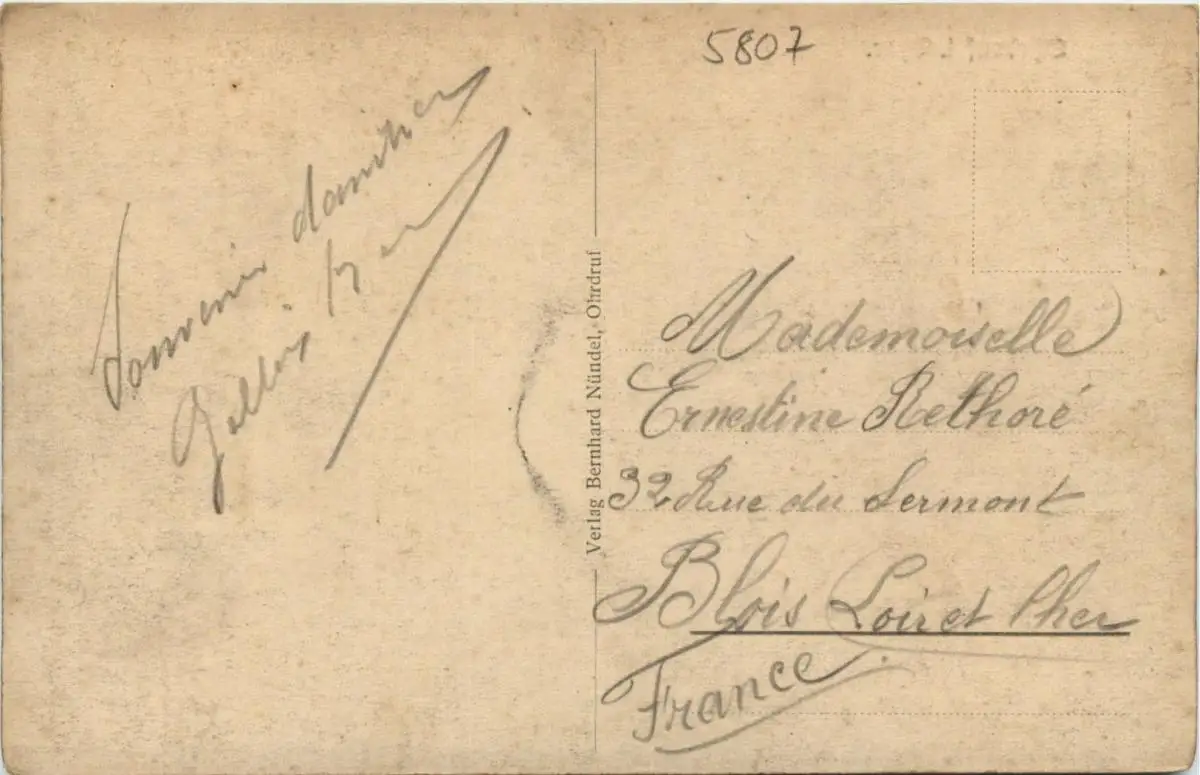 5807
Souvenir damitier
Verlag Bernhard Nündel, Ohrdruf
Mademoiselle
Ernestine Rethoré
32 Rue du Sermont
Blois Loir et Cher
France